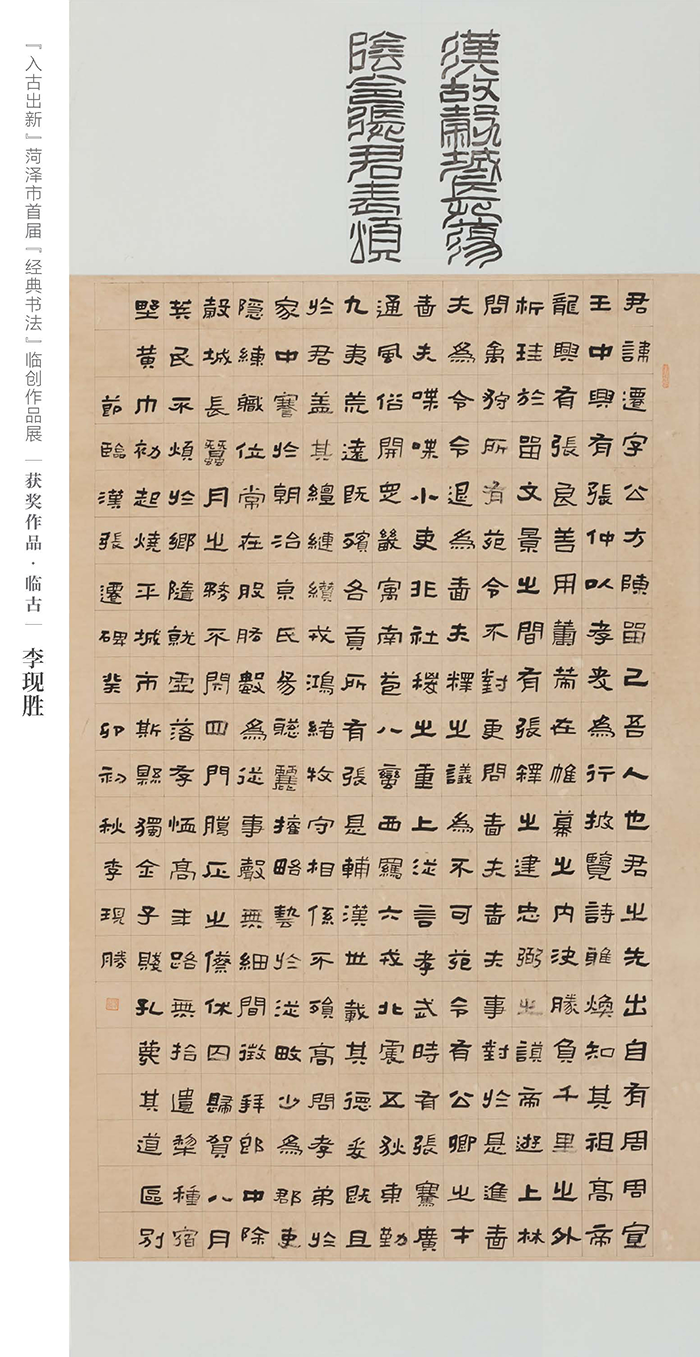 『入古出新』菏泽市首届『经典书法』临创作品展｜获奖作品·临古｜李现胜
漢故穀城長蕩
陰令張君表頌
君諱遷字公方陳留己吾人也君之先出自有周周宣
王中興有張仲以孝友為行披覽詩雅煥知其祖高帝
龍興有張良善用籌策在帷幕之內決勝負千里之外
析珪於留文景之間有張釋之建忠弼之謨帝遊上林
問禽狩所有苑令不對更問嗇夫嗇夫事對於是進嗇
夫為令令退為嗇夫釋之議為不可苑令有公卿之才
嗇夫喋喋小吏非社稷之重上從言孝武時有張騫廣
通風俗開定畿寓南苞八蠻西羈六戎北震五狄東勤
九夷荒遠既殯各貢所有張是輔漢世載其德爰既且
於君蓋其繵縺纘戎鴻緒牧守相係不殞高問孝弟於
家中謇於朝治京氏易聰麗權略藝於從畋少為郡吏
隱練職位常在股肱數為從事聲無細聞徵拜郎中除
穀城長蠶月之務不閉四門臘正之僚休囚歸賀八月
筭民不煩於鄉隨就虛落存恤高年路無拾遺犁種宿
野黃巾初起燒平城市斯縣獨全子賤孔蔑其道區別
節臨漢張遷碑癸卯初秋李現勝